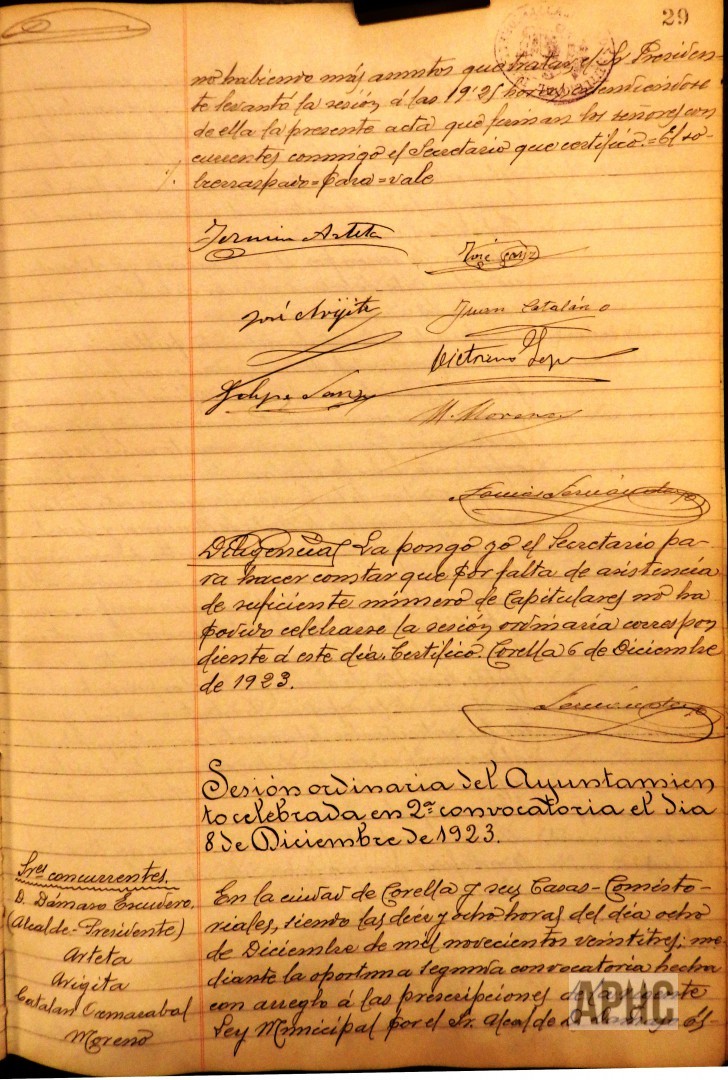 29
no habiendo más asuntos que tratar, el Sr. Presiden-
te levantó la sesión á las 19'25 horas extendiéndose
de ella la presente acta que firman los señores con
currentes conmigo el Secretario que certifico.=El so-
breraspado=para=vale
Fermin Arteta
José Sanz
José Arigita
Juan Catalán
Victorino
Felipe Sanz
M. Moreno
Diligencia/ La pongo yo el Secretario pa-
ra hacer constar que por falta de asistencia
de suficiente número de Capitulares no ha
podido celebrarse la sesión ordinaria correspon
diente á este día. Certifico. Corella 6 de Diciembre
de 1923.
Sesión ordinaria del Ayuntamien
to celebrada en 2ª convocatoria el dia
8 de Diciembre de 1923.
Sres concurrentes.
D. Dámaso Escudero,
(Alcalde-Presidente)
Arteta
Arigita
Catalán Camarabal
Moreno
En la ciudad de Corella y sus Casas-Consisto-
riales, siendo las diez y ocho horas del día ocho
de Diciembre de mil novecientos veintitres; me-
diante la oportuna segunda convocatoria hecha
con arreglo á las prescripciones de la vigente
Ley Municipal por el Sr. Alcalde D. Dámaso Es-
APHC